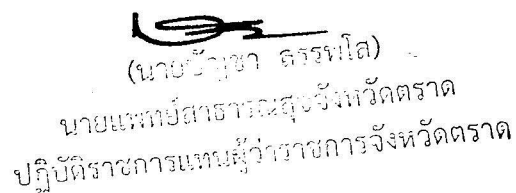 (นายบัญชา สรรพโส)
นายแพทย์สาธารณสุขจังหวัดตราด
ปฏิบัติราชการแทนผู้ว่าราชการจังหวัดตราด